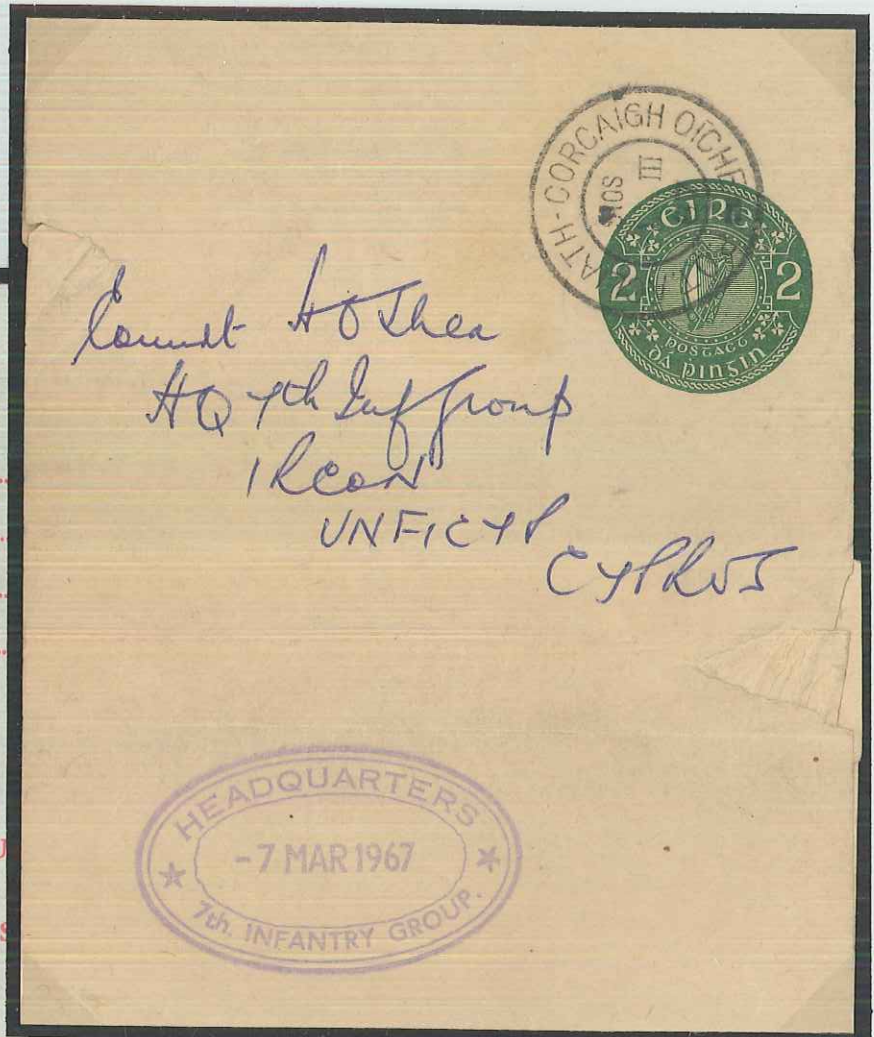 ATH-CORCAIGH OICHE
SOIS
III
EIRE
2 2
POSTAGE
DÁ PINSIN
Comdt H O Shea
HQ 7th Inf Group
IRCON
UNFICYP
CYPRUS
HEADQUARTERS
-7 MAR 1967
7th. INFANTRY GROUP.